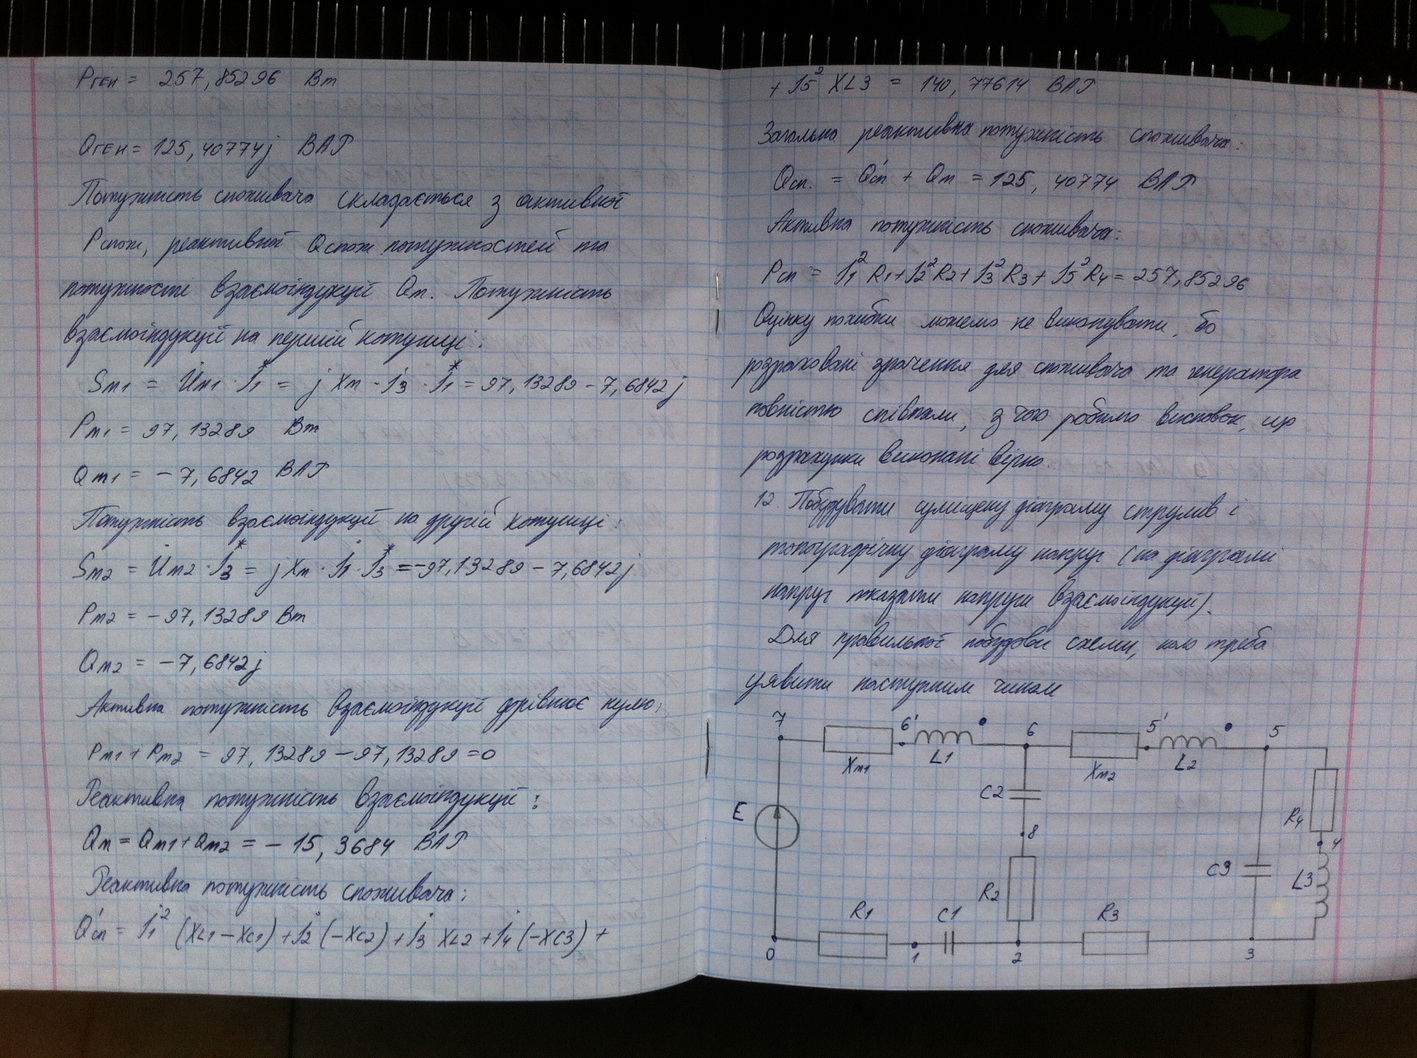 Pген = 257,85296 Вт
Qген = 125,40774j ВАР
Потужність споживача складається з активної
Pспож, реактивної Qспож потужностей та
потужности взаємоіндукції Qm. Потужність
взаємоіндукції на першій котушці:
Sm1 = U̇m1 · I₁* = j Xm · İ3 · I₁* = 97,13289 - 7,6842j
Pm1 = 97,13289 Вт
Qm1 = -7,6842 ВАР
Потужність взаємоіндукції на другій котушці:
Sm2 = U̇m2 · I₃* = j Xm · İ1 · I₃* = -97,13289 - 7,6842j
Pm2 = -97,13289 Вт
Qm2 = -7,6842j
Активна потужність взаємоіндукції дорівнює нулю,
Pm1 + Pm2 = 97,13289 - 97,13289 = 0
Реактивна потужність взаємоіндукції:
Qm = Qm1 + Qm2 = -15,3684 ВАР
Реактивна потужність споживача:
Q'сп = I1² (XL1 - XC1) + I2 (-XC2) + I3 XL2 + I4 (-XC3) +
+ I5² XL3 = 140,77614 ВАР
Загальна реактивна потужність споживача:
Qсп. = Q'сп + Qm = 125,40774 ВАР
Активна потужність споживача:
Pсп = I1² R1 + I2² R2 + I3² R3 + I5² R4 = 257,85296
Оцінку похибки можемо не виконувати, бо
розраховані значення для споживача та генератора
повністю співпали, з чого робимо висновок, що
розрахунки виконані вірно.
12. Побудувати суміщену діаграму струмів і
топографічну діаграму напруг (на діаграми
напруг показати напруги взаємоіндукції).
Для правильної побудови схеми, коло треба
уявити наступним чином
7 6' 6 5' 5
Xm1 L1 Xm2 L2
E C2 8 R4 4
R2 C3 L3
R1 C1 R3
0 1 2 3